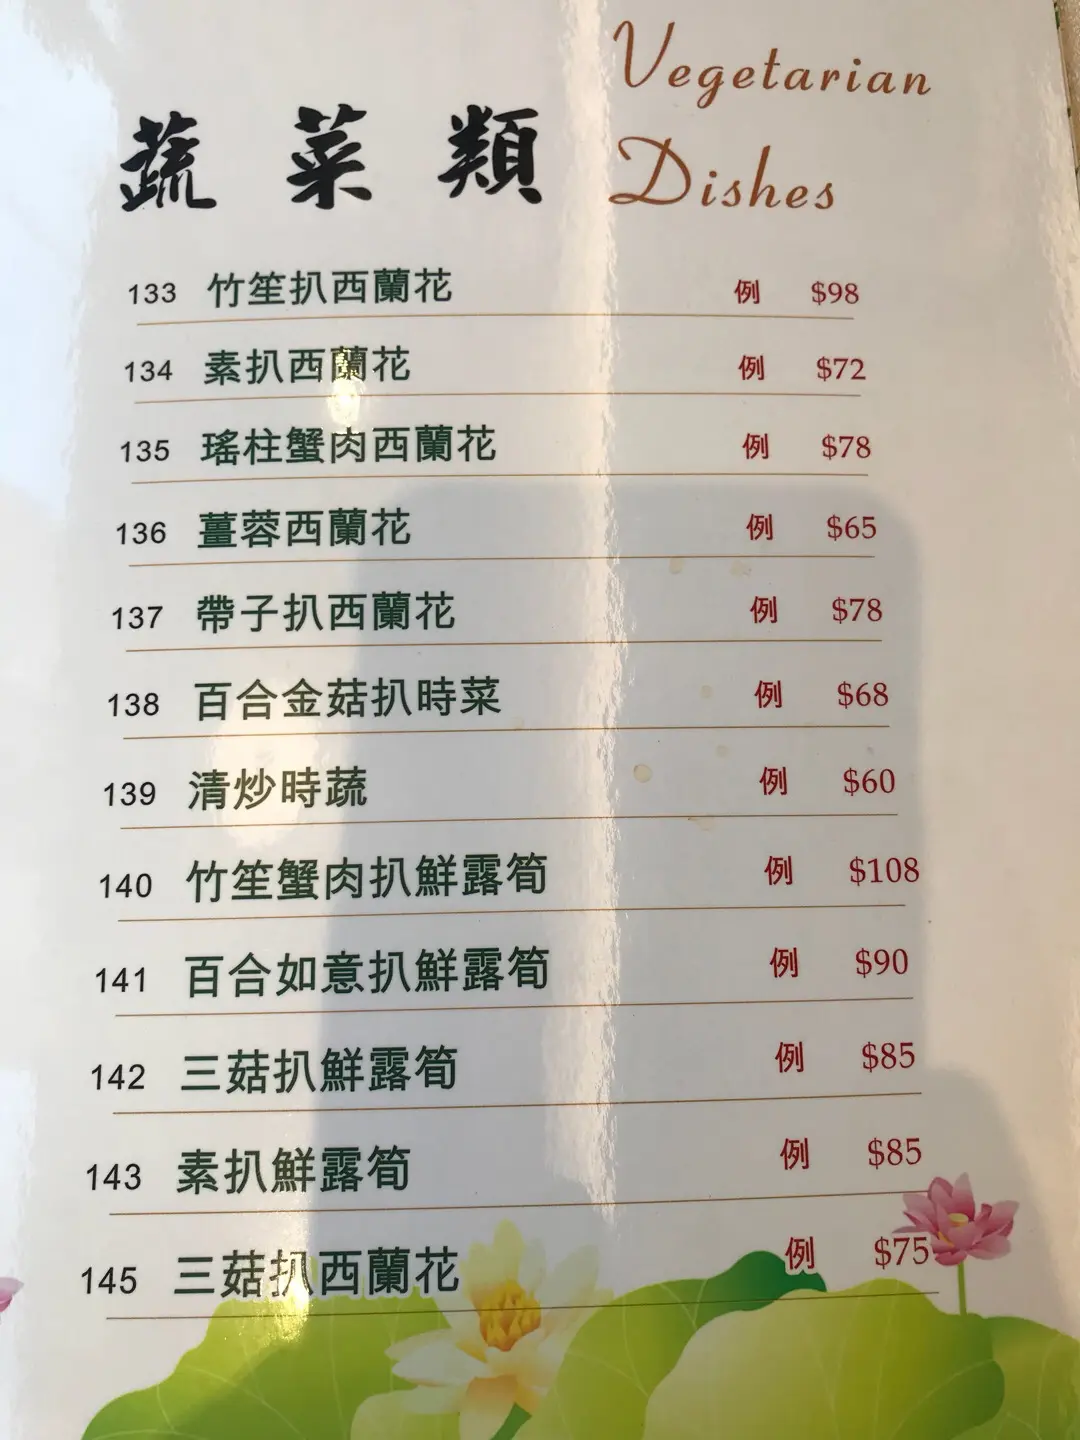 蔬菜類
Vegetarian
Dishes
133 竹笙扒西蘭花 例 $98
134 素扒西蘭花 例 $72
135 瑤柱蟹肉西蘭花 例 $78
136 薑蓉西蘭花 例 $65
137 帶子扒西蘭花 例 $78
138 百合金菇扒時菜 例 $68
139 清炒時蔬 例 $60
140 竹笙蟹肉扒鮮露筍 例 $108
141 百合如意扒鮮露筍 例 $90
142 三菇扒鮮露筍 例 $85
143 素扒鮮露筍 例 $85
145 三菇扒西蘭花 例 $75